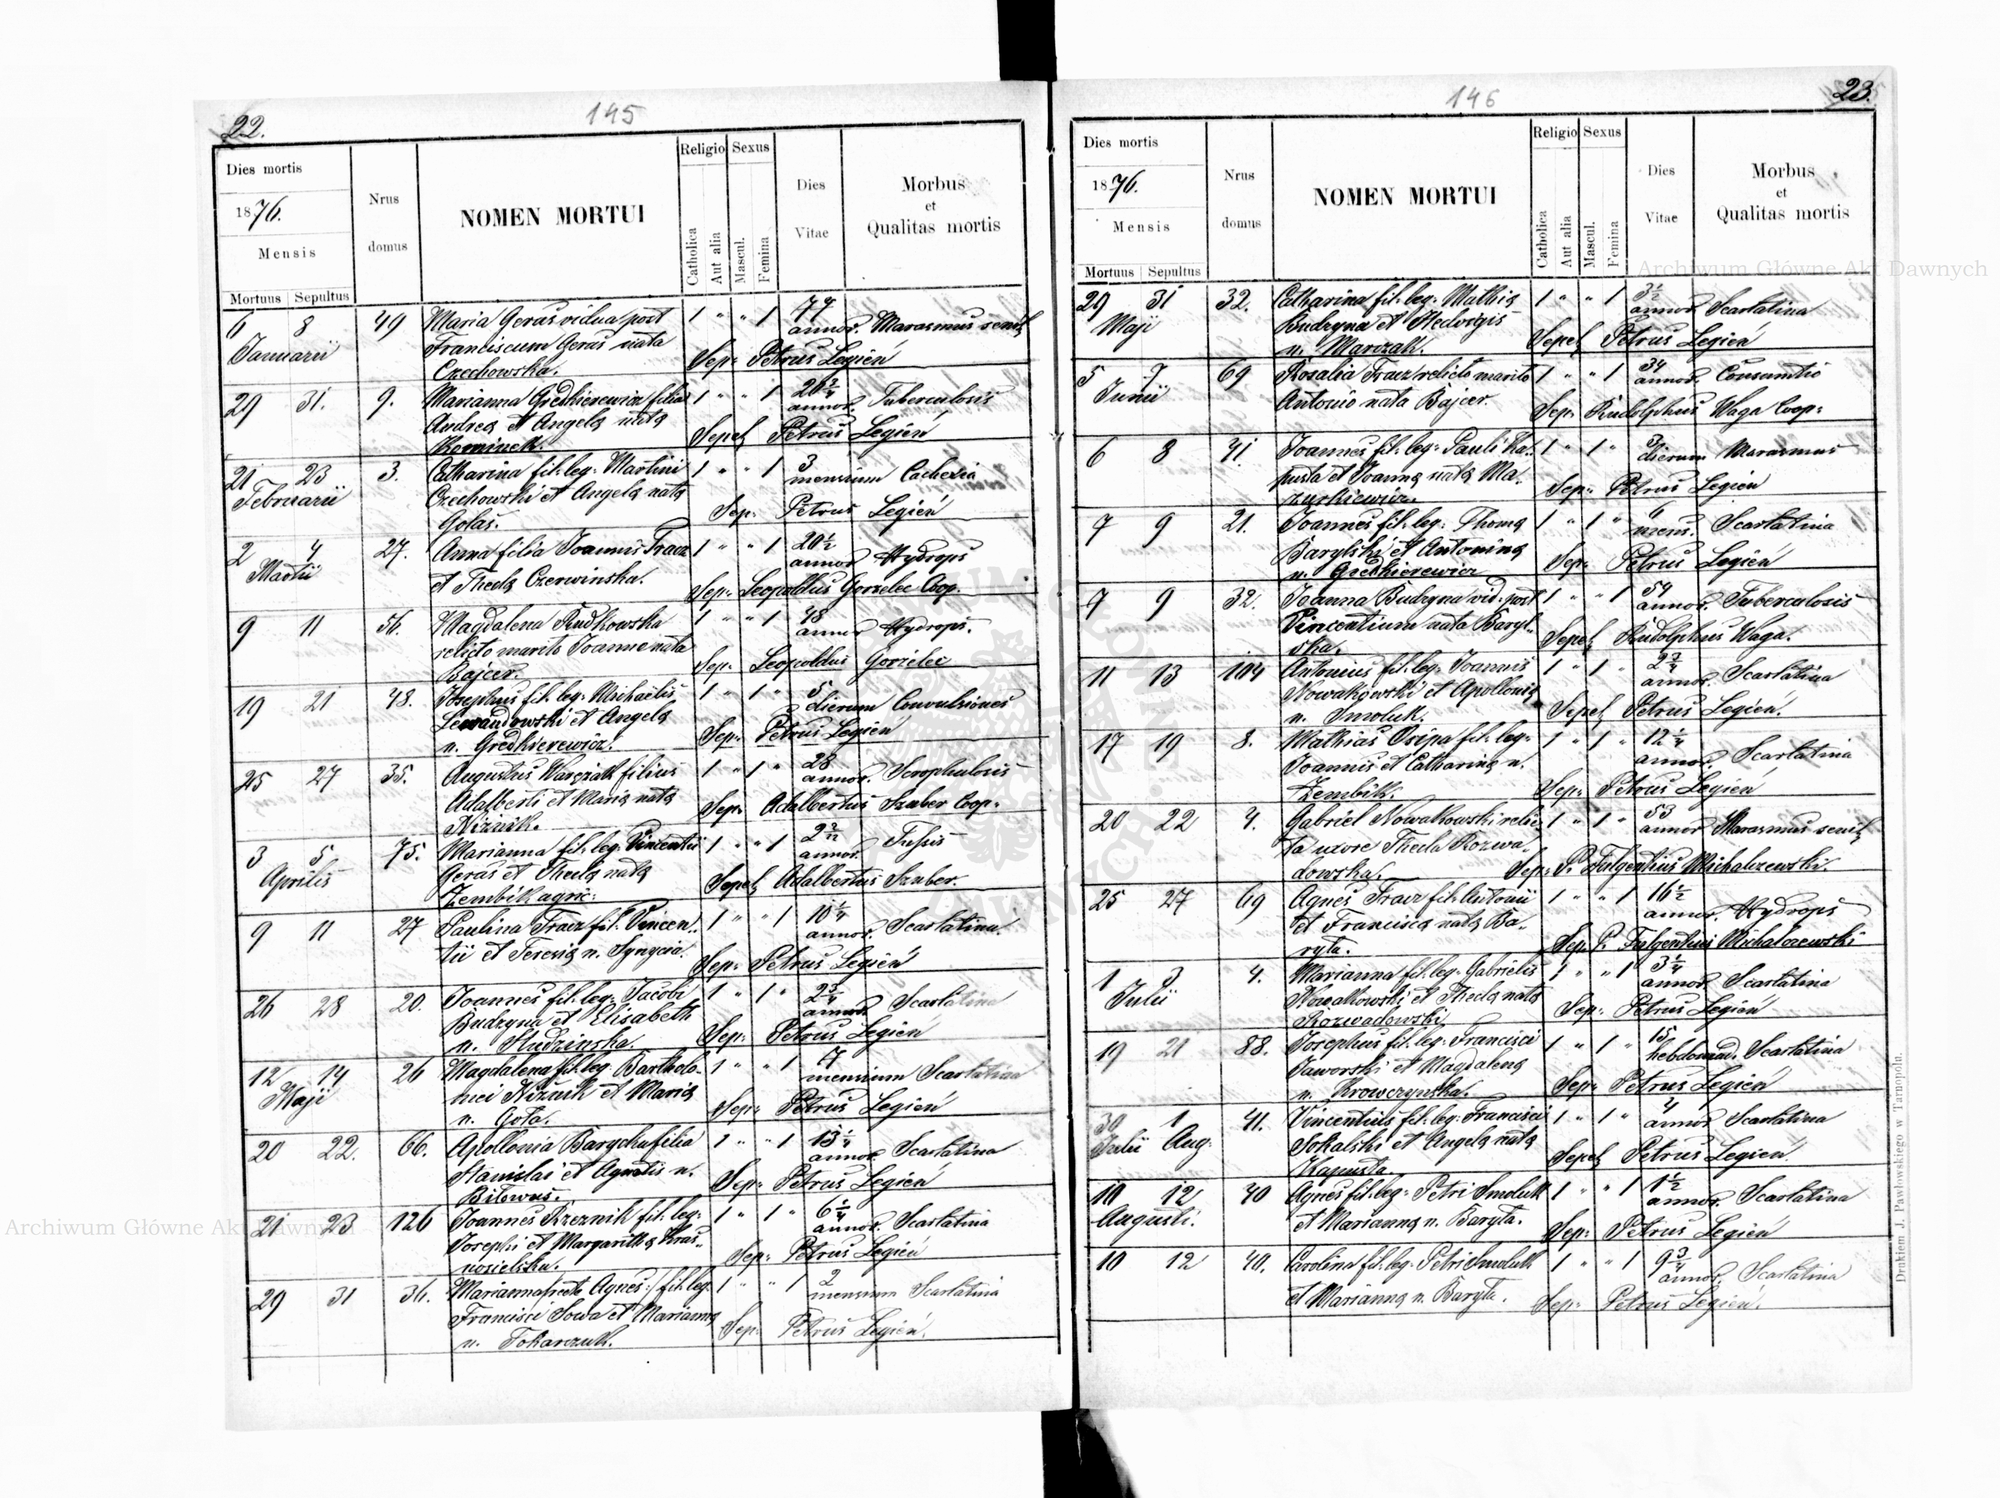 22.
145
Dies mortis
1876.
Mensis
Mortuus Sepultus
Nrus
domus
NOMEN MORTUI
Religio
Catholica
Aut alia
Sexus
Mascul.
Femina
Dies
Vitae
Morbus
et
Qualitas mortis
6 8 49 Maria Geras vidua post 1 " " 1 77
Januarii Franciscum Geras nata annor. Marasmus senil
Czechowska. Sep: Petrus Legień
29 31. 9. Marianna Gredkierewicz filia 1 " " 1 20
Andreą et Angelą natą annor. Tuberculosis
Kominek. Sepel Petrus Legień
21 23 3. Catharina fil: leg: Martini 1 " " 1 3
Februarii Czechowski et Angelą natą mensium Cachexia
Golas. Sep: Petrus Legień
2 4 27. Anna filia Joannis Tracz 1 " " 1 20½
Martii et Theclą Czerwinska. annor Hydrops
Sep: Leopoldus Gorzelec Coop.
9 11 56. Magdalena Rudkowska 1 " " 1 48
relicto marito Joanne nata annor Hydrops.
Bajcer. Sep: Leopoldus Gorzelec
19 21 48. Josephus fil: leg: Michaelis 1 " 1 " 5
Lewandowski et Angelą dierum Convulsiones
n. Gredkierewicz. Sep: Petrus Legień
25 27 35. Augustus Warziak filius 1 " 1 " 28
Adalberti et Marią natą annor. Scrophulosis
Niznik. Sep: Adalbertus Szuber Coop:
3 5 75. Marianna fil: leg: Vincentii 1 " " 1 2
Aprilis Geras et Theclą natą annor. Tussis
Zembik agric: Sepel Adalbertus Szuber.
9 11 27 Paulina Tracz fil: Vincen 1 " " 1 10¼
tii et Teresią n. Synycia. annor. Scarlatina.
Sep: Petrus Legień
26 28 20. Joannes fil: leg: Jacobi 1 " 1 " 2¾
Budzyna et Elisabeth annor Scarlatina
n. Studzinska. Sep: Petrus Legień
12 14 26 Magdalena fil: leg: Bartholo- 1 " " 1 7
Maji mei Niżnik et Marią mensium Scarlatina
n. Gota. Sep: Petrus Legień
20 22. 66. Apollonia Barych filia 1 " " 1 13¼
Stanislai et Agnetis n. annor Scarlatina
Biłowus. Sep: Petrus Legień
21 23 126 Joannes Rzeznik fil: leg: 1 " 1 " 6¼
Josephi et Margarithą Kras- annor. Scarlatina
nosielska. Sep: Petrus Legień
29 31 36. Marianna recte Agnes / fil: leg. 1 " " 1 2
Francisci Sowa et Marianną mensium Scarlatina
n. Tokarczuk. Sep: Petrus Legień.
23.
146
Dies mortis
1876.
Mensis
Mortuus Sepultus
Nrus
domus
NOMEN MORTUI
Religio
Catholica
Aut alia
Sexus
Mascul.
Femina
Dies
Vitae
Morbus
et
Qualitas mortis
29 31 32. Catharina fil: leg: Mathią 1 " " 1 3½
Maji Budzyna et Hedvigis annor Scarlatina
n. Marczak. Sepel Petrus Legień
5 7 69 Rosalia Tracz relicto marito 1 " " 1 34
Junii Antonio nata Bajcer. annor. Consumtio
Sep: Rudolphus Waga Coop:
6 8 41. Joannes fil: leg: Pauli Ka- 1 " 1 " 3
pusta et Joanną natą Ma- dierum Marasmus
zurkiewicz. Sep: Petrus Legień
7 9 21. Joannes fil: leg: Thomą 1 " 1 " 6
Barylski et Antoniną mens. Scarlatina
n. Gredkierewicz Sep: Petrus Legień
7 9 32. Joanna Budzyna vid: post 1 " " 1 54
Vincentium nata Baryl- annor. Tuberculosis
ska. Sepel Rudolphus Waga.
11 13 104 Antonius fil: leg: Joannis 1 " 1 " 2¾
Nowakowski et Apollonią annor. Scarlatina
n. Smoluk. Sepel Petrus Legień.
17 19 8. Mathias Osipa fil: leg: 1 " 1 " 12¼
Joannis et Cathariną n. annor. Scarlatina
Zembik. Sep: Petrus Legień
20 22 4. Gabriel Nowakowski relic 1 " 1 " 53
ta uxore Thecla Rozwa- annor Marasmus senil
dowska. Sep: P. Fulgentius Michalczewski.
25 27 69 Agnes Tracz fil: Antonii 1 " " 1 16½
et Franciscą natą Ba- annor. Hydrops
ryta. Sep. P. Fulgentius Michalczewski
1 3 4. Marianna fil: leg: Gabrielis 1 " " 1 3¼
Julii Nowakowski et Theclą natą annor Scarlatina
Rozwadowski Sep: Petrus Legień
19 21 88. Josephus fil: leg: Francisci 1 " 1 " 15
Jaworski et Magdaleną hebdomad. Scarlatina
n. Krowczynska. Sep: Petrus Legień
30 1 41. Vincentius fil: leg: Francisci 1 " 1 " 4
Julii Aug: Sokalski et Angelą natą annor Scarlatina
Kapusta. Sepel Petrus Legień.
10 12 40 Agnes fil: leg: Petri Smoluk 1 " " 1 1½
Augusti. et Marianną n. Baryta. annor. Scarlatina
Sep: Petrus Legień
10 12 40. Carolina fil: leg: Petri Smoluk 1 " " 1 9¾
et Marianną n. Baryta. annor. Scarlatina
Sep: Petrus Legień.
Drukiem J. Pawłowskiego w Tarnopolu.
Archiwum Główne Akt Dawnych
Archiwum Główne Akt Dawnych